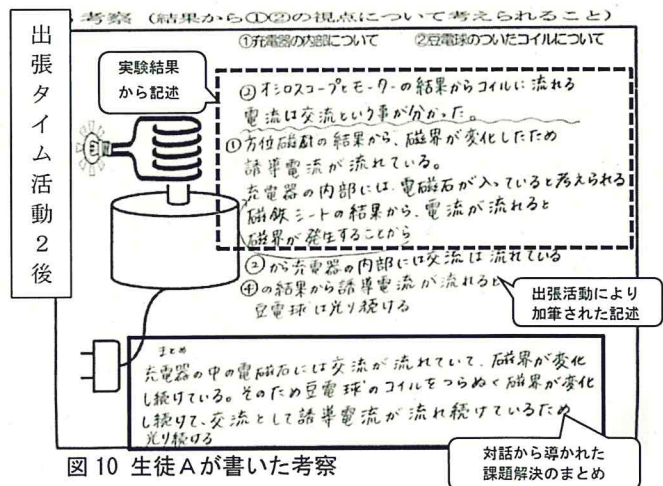 考察（結果から①②の視点について考えられること）
①充電器の内部について　②豆電球のついたコイルについて
出張タイム活動２後
実験結果
から記述
②オシロスコープとモーターの結果からコイルに流れる
電流は交流という事が分かった。
①方位磁針の結果から、磁界が変化したため
誘導電流が流れている。
充電器の内部には、電磁石が入っていると考えられる
磁鉄シートの結果から、電流が流れると
磁界が発生することから
②から充電器の内部には交流は流れている
④の結果から誘導電流が流れると
豆電球は光り続ける
出張活動により
加筆された記述
まとめ
充電器の中の電磁石には交流が流れていて、磁界が変化
し続けている。そのため豆電球のコイルをつらぬく磁界が変化
し続けて、交流として誘導電流が流れ続けているため
光り続ける
対話から導かれた
課題解決のまとめ
図 10 生徒Ａが書いた考察